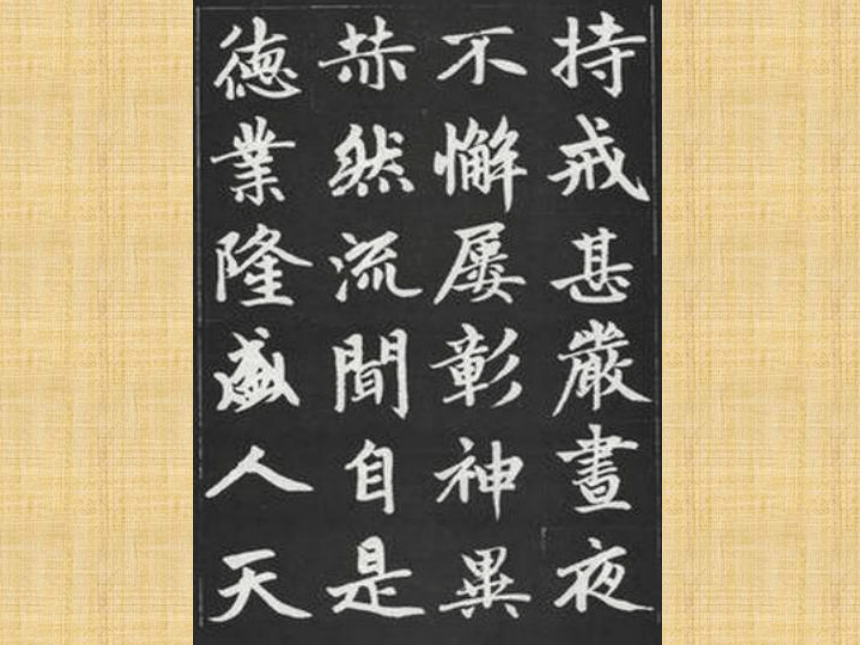 持戒甚嚴晝夜
不懈屢彰神異
赫然流聞自是
德業隆盛人天